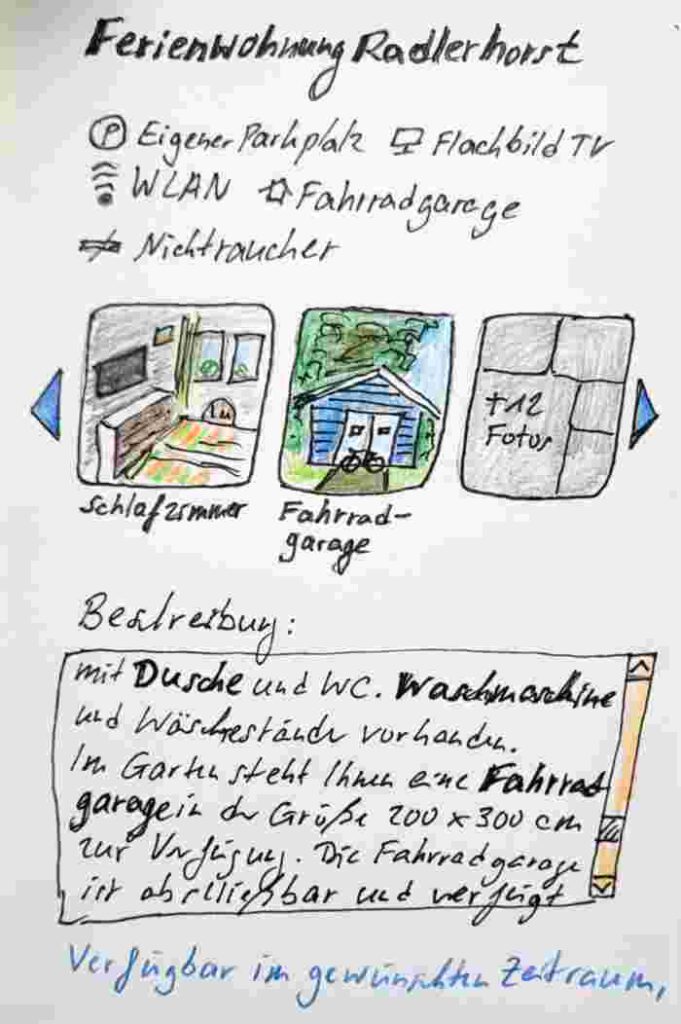 Ferienwohnung Radlerhorst
P Eigener Parkplatz Flachbild TV
WLAN Fahrradgarage
Nichtraucher
+12
Fotos
Schlafzimmer
Fahrrad-
garage
Beschreibung:
mit Dusche und WC. Waschmaschine
und Wäscheständer vorhanden.
Im Garten steht Ihnen eine Fahrrad
garage in der Größe 200 x 300 cm
zur Verfügung. Die Fahrradgarage
ist abschließbar und verfügt
Verfügbar im gewünschten Zeitraum,